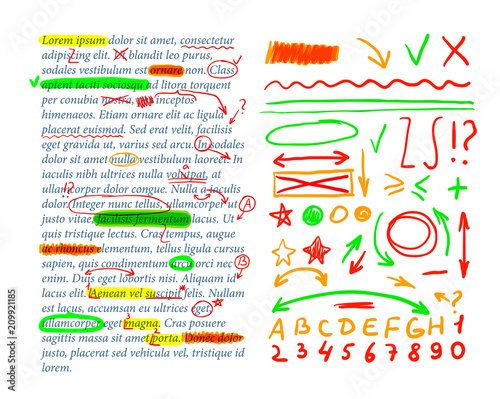 Lorem ipsum dolor sit amet, consectetur
adipiscing elit. Ut blandit leo purus,
sodales vestibulum ornare non. Class
aptent taciti sociosqu ad litora torquent
per conubia nostra, inceptos
himenaeos. Etiam ornare elit ac ligula
placerat euismod. Sed erat velit, facilisis
eget gravida ut, varius sit amet nunc. In
sodales nulla vestibulum laoreet. In
iaculis nibh ultrices nulla volutpat, at
a
ullamcorper dolor congue. Nulla a iaculis
!?
dolor. Integer nunc tellus, ullamcorper et
justo vitae, facilisis fermentum lacus. Ut
quis tristique lectus. Cras tempus, augue
ac rhoncus elementum, tellus ligula cursus
sapien, quis condimentum arcu orci nec
enim. Duis eget lobortis nisi. Aliquam id
lacus elit. Aenean vel suscipit felis. Nullam
est lacus, dapibus ut ultrices eget,
ullamcorper eget magna. Cras posuere
sagittis massa sit amet porta. Donec dolor
justo, placerat sed vehicula vel, tristique id
lorem.
?
A
B
1
3
2
!?
≥ < +
?
A B C D E F G H 1
2 3 4 5 6 7 8 9 0
Adobe Stock | #209921185